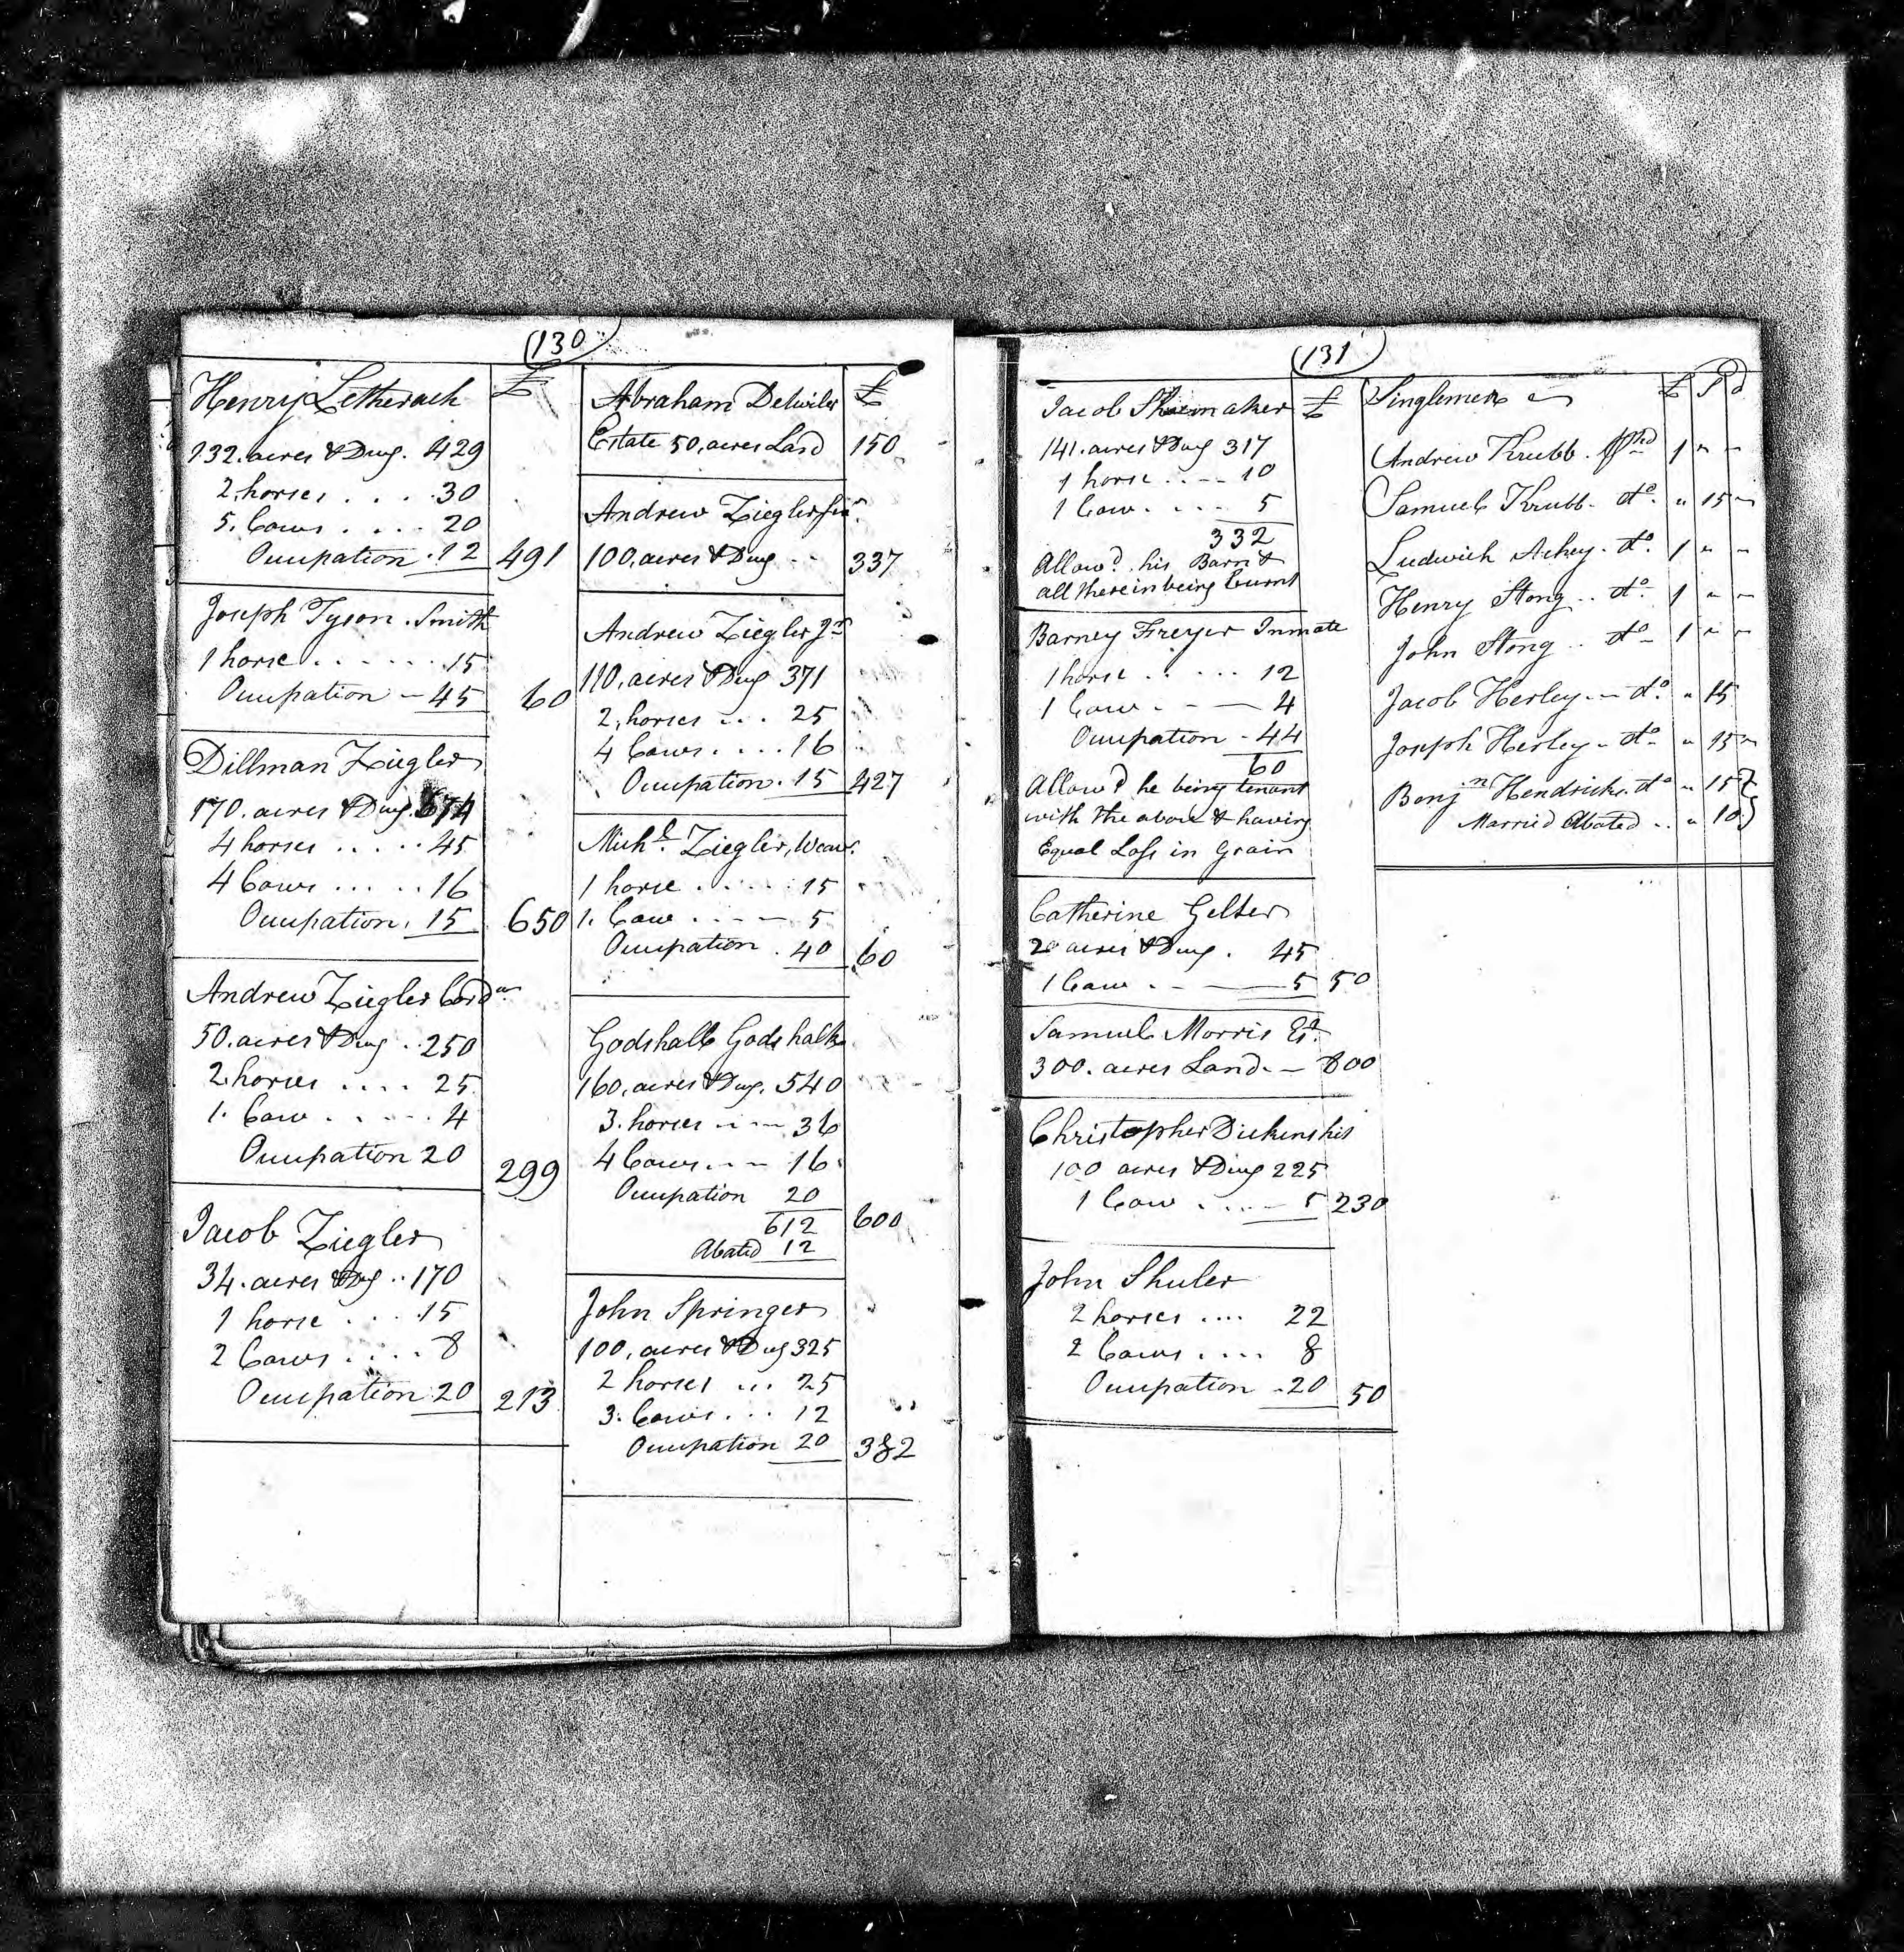 (130)
Henry Letherach £
132. acres & Dwg. 429
2. horses . . . . 30
5. Cows . . . . 20
Occupation . 12 491
Joseph Tyson . Smith
1 horse . . . . . . 15
Occupation - 45 60
Dillman Ziegler
170. acres & Dwg. 574
4 horses . . . . . 45
4 Cows . . . . . 16
Occupation . 15 650
Andrew Ziegler Cordr
50. acres & Dwg . . 250
2. horses . . . . 25
1. Cow . . . . . 4
Occupation 20 299
Jacob Ziegler
34. acres & Dwg . . 170
1 horse . . . 15
2 Cows . . . . 8
Occupation 20 213
Abraham Detwiler £
Estate 50, acres Land 150
Andrew Ziegler senr.
100, acres & Dwg - - 337
Andrew Ziegler Jr
110, acres & Dwg 371
2, horses . . . 25
4 Cows . . . . 16
Occupation . 15 427
Michl. Ziegler, Weavr.
1 horse . . . . . 15
1. Cow . . - - 5
Occupation . 40 60
Godshall Godshalk
160, acres & Dwg. 540
3. horses - - - 36
4 Cows - - - 16
Occupation 20
612 600
Abated 12
John Springer
100, acres & Dwg 325
2 horses . . . 25
3. Cows . . . 12
Occupation 20 382
(131)
Jacob Shoemaker £
141. acres & Dwg 317
1 horse . . - - 10
1 Cow . . . . 5
332
Allowd. his Barn &
all therein being burnt
Barney Freyer Inmate
1 horse . . . . . 12
1 Cow . - - 4
Occupation - 44
60
Allowd he being tenant
with the above & having
Equal Loss in Grain
Catherine Gelter
20 acres & Dwg . 45
1 Cow . - - 5 50
Samuel Morris Et.
300. acres Land. - 800
Christopher Dickenshit
100 acres & Dwg 225
1 Cow . . . - 5 230
John Shuler
2 horses . . . . 22
2 Cows . . . . 8
Occupation - 20 50
Singlemen £ S d
Andrew Krubb. 1 " "
Samuel Krubb. do. " 15 "
Ludwich Achey. do. 1 " "
Henry Stong . . do. 1 " "
John Stong . . do 1 " "
Jacob Herley - - do. " 15
Joseph Herley - do " 15 "
Benjn Hendricks. do " 15
Married Abated . . " 10